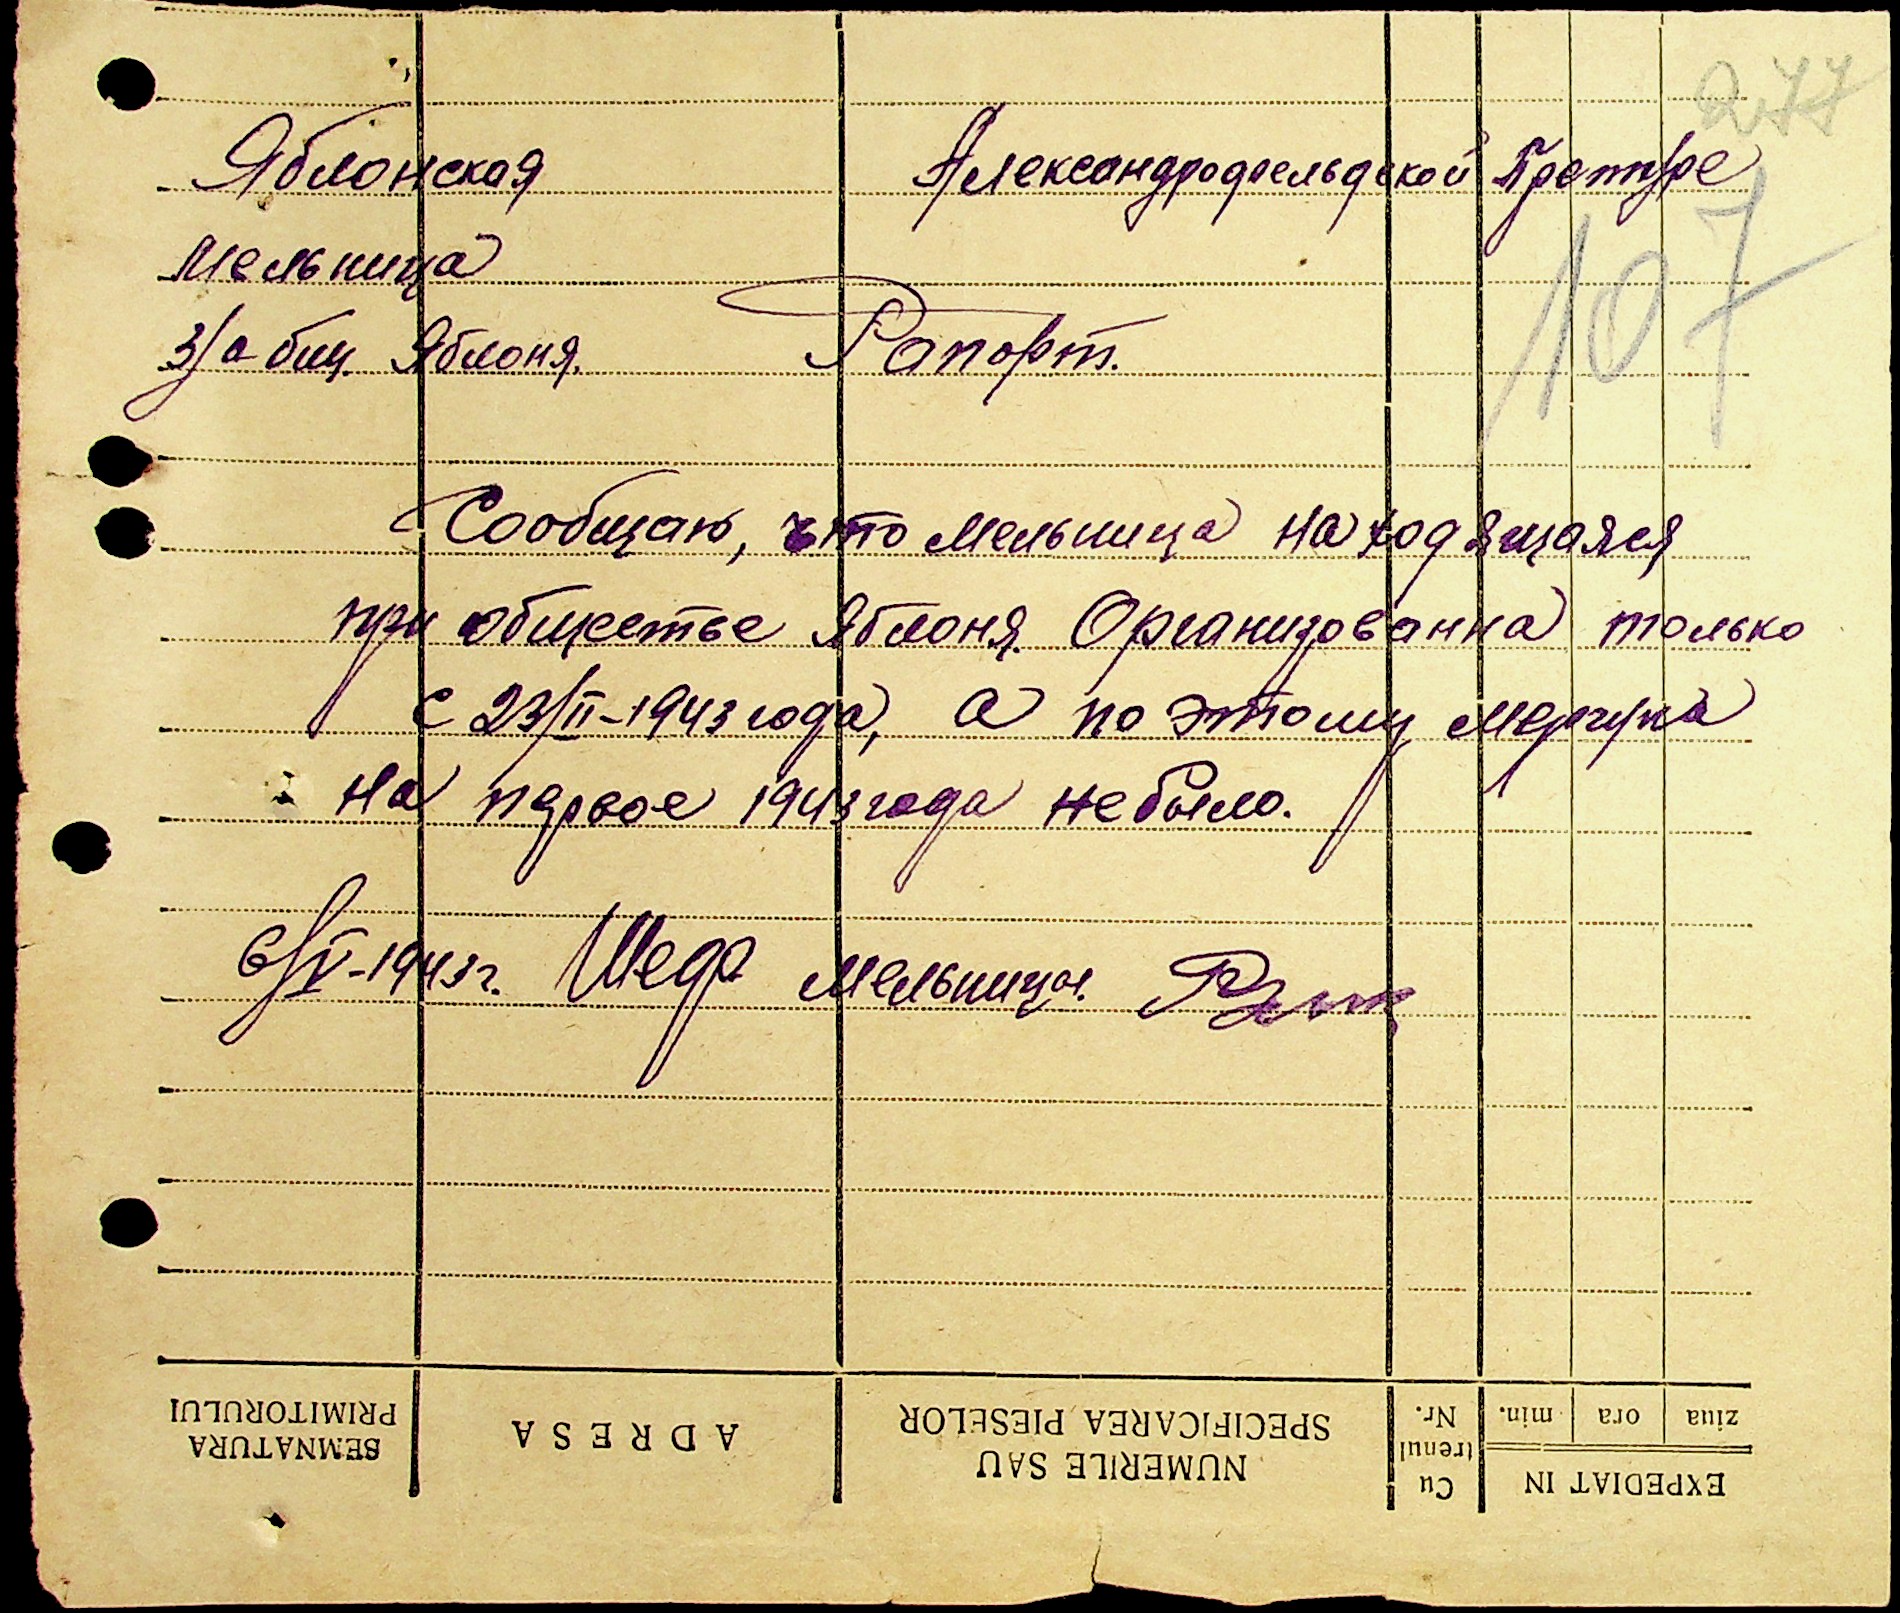 277
Яблонская Александрофельдской Претуре
мельница 107
з/а бщ. Яблоня. Рапорт.
Сообщаю, что мельница находящаяся
при обществе Яблоня. Организованна только
с 23/II-1943 года, а по этому мерчука
на первое 1943 года не было.
6/V-1943 г. Шеф мельницы.
SEMNATURA PRIMITORULUI
ADRESA
NUMERILE SAU SPECIFICAREA PIESELOR
Cu trenul Nr.
EXPEDIAT IN
ziua ora min.